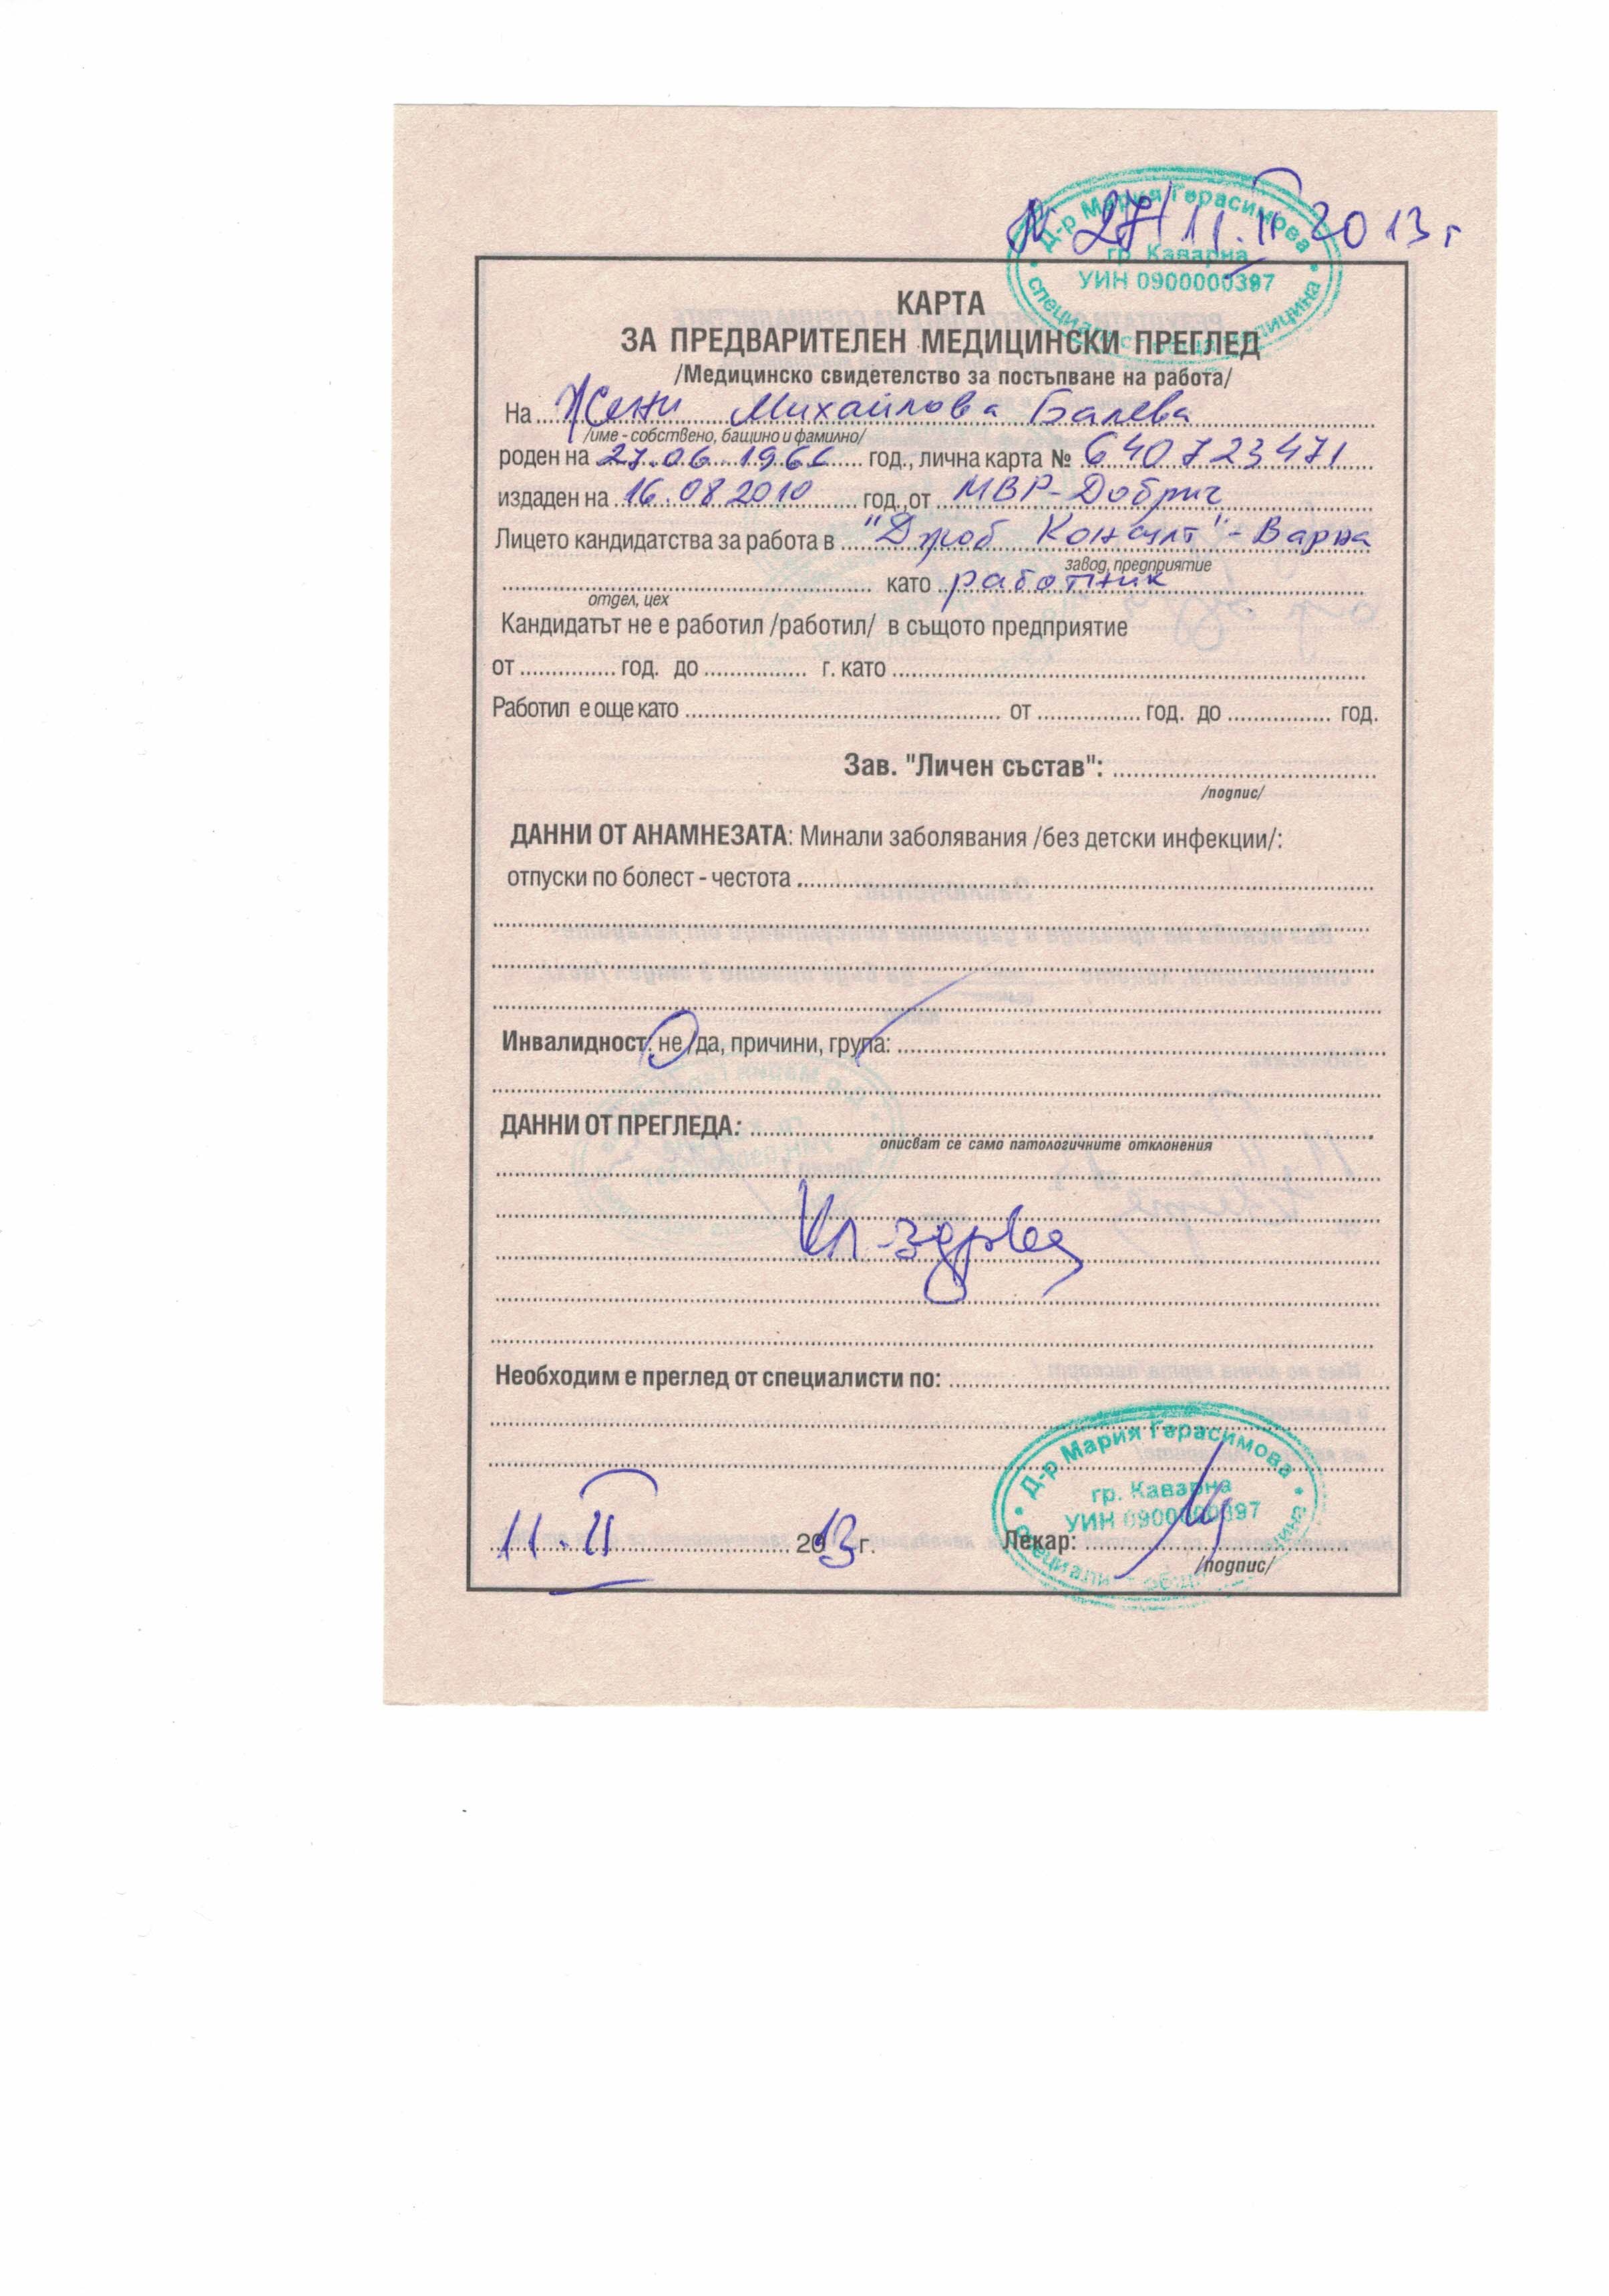 № 27/11.II 2013 г
Д-р Мария Герасимова
гр. Каварна
УИН 0900000397
КАРТА
ЗА ПРЕДВАРИТЕЛЕН МЕДИЦИНСКИ ПРЕГЛЕД
/Медицинско свидетелство за постъпване на работа/
На Жени Михайлова Балева
/име - собствено, бащино и фамилно/
роден на 27.06.1966 год., лична карта № 640723471
издаден на 16.08.2010 год., от МВР-Добрич
Лицето кандидатства за работа в "Джоб Консулт" - Варна
завод, предприятие
като работник
отдел, цех
Кандидатът не е работил /работил/ в същото предприятие
от год. до г. като
Работил е още като от год. до год.
Зав. "Личен състав":
/подпис/
ДАННИ ОТ АНАМНЕЗАТА: Минали заболявания /без детски инфекции/:
отпуски по болест - честота
Инвалидност: не/да, причини, група:
ДАННИ ОТ ПРЕГЛЕДА:
описват се само патологичните отклонения
Кл-здрава
Необходим е преглед от специалисти по:
Д-р Мария Герасимова
гр. Каварна
УИН 0900000397
11.II 2013 г. Лекар:
/подпис/